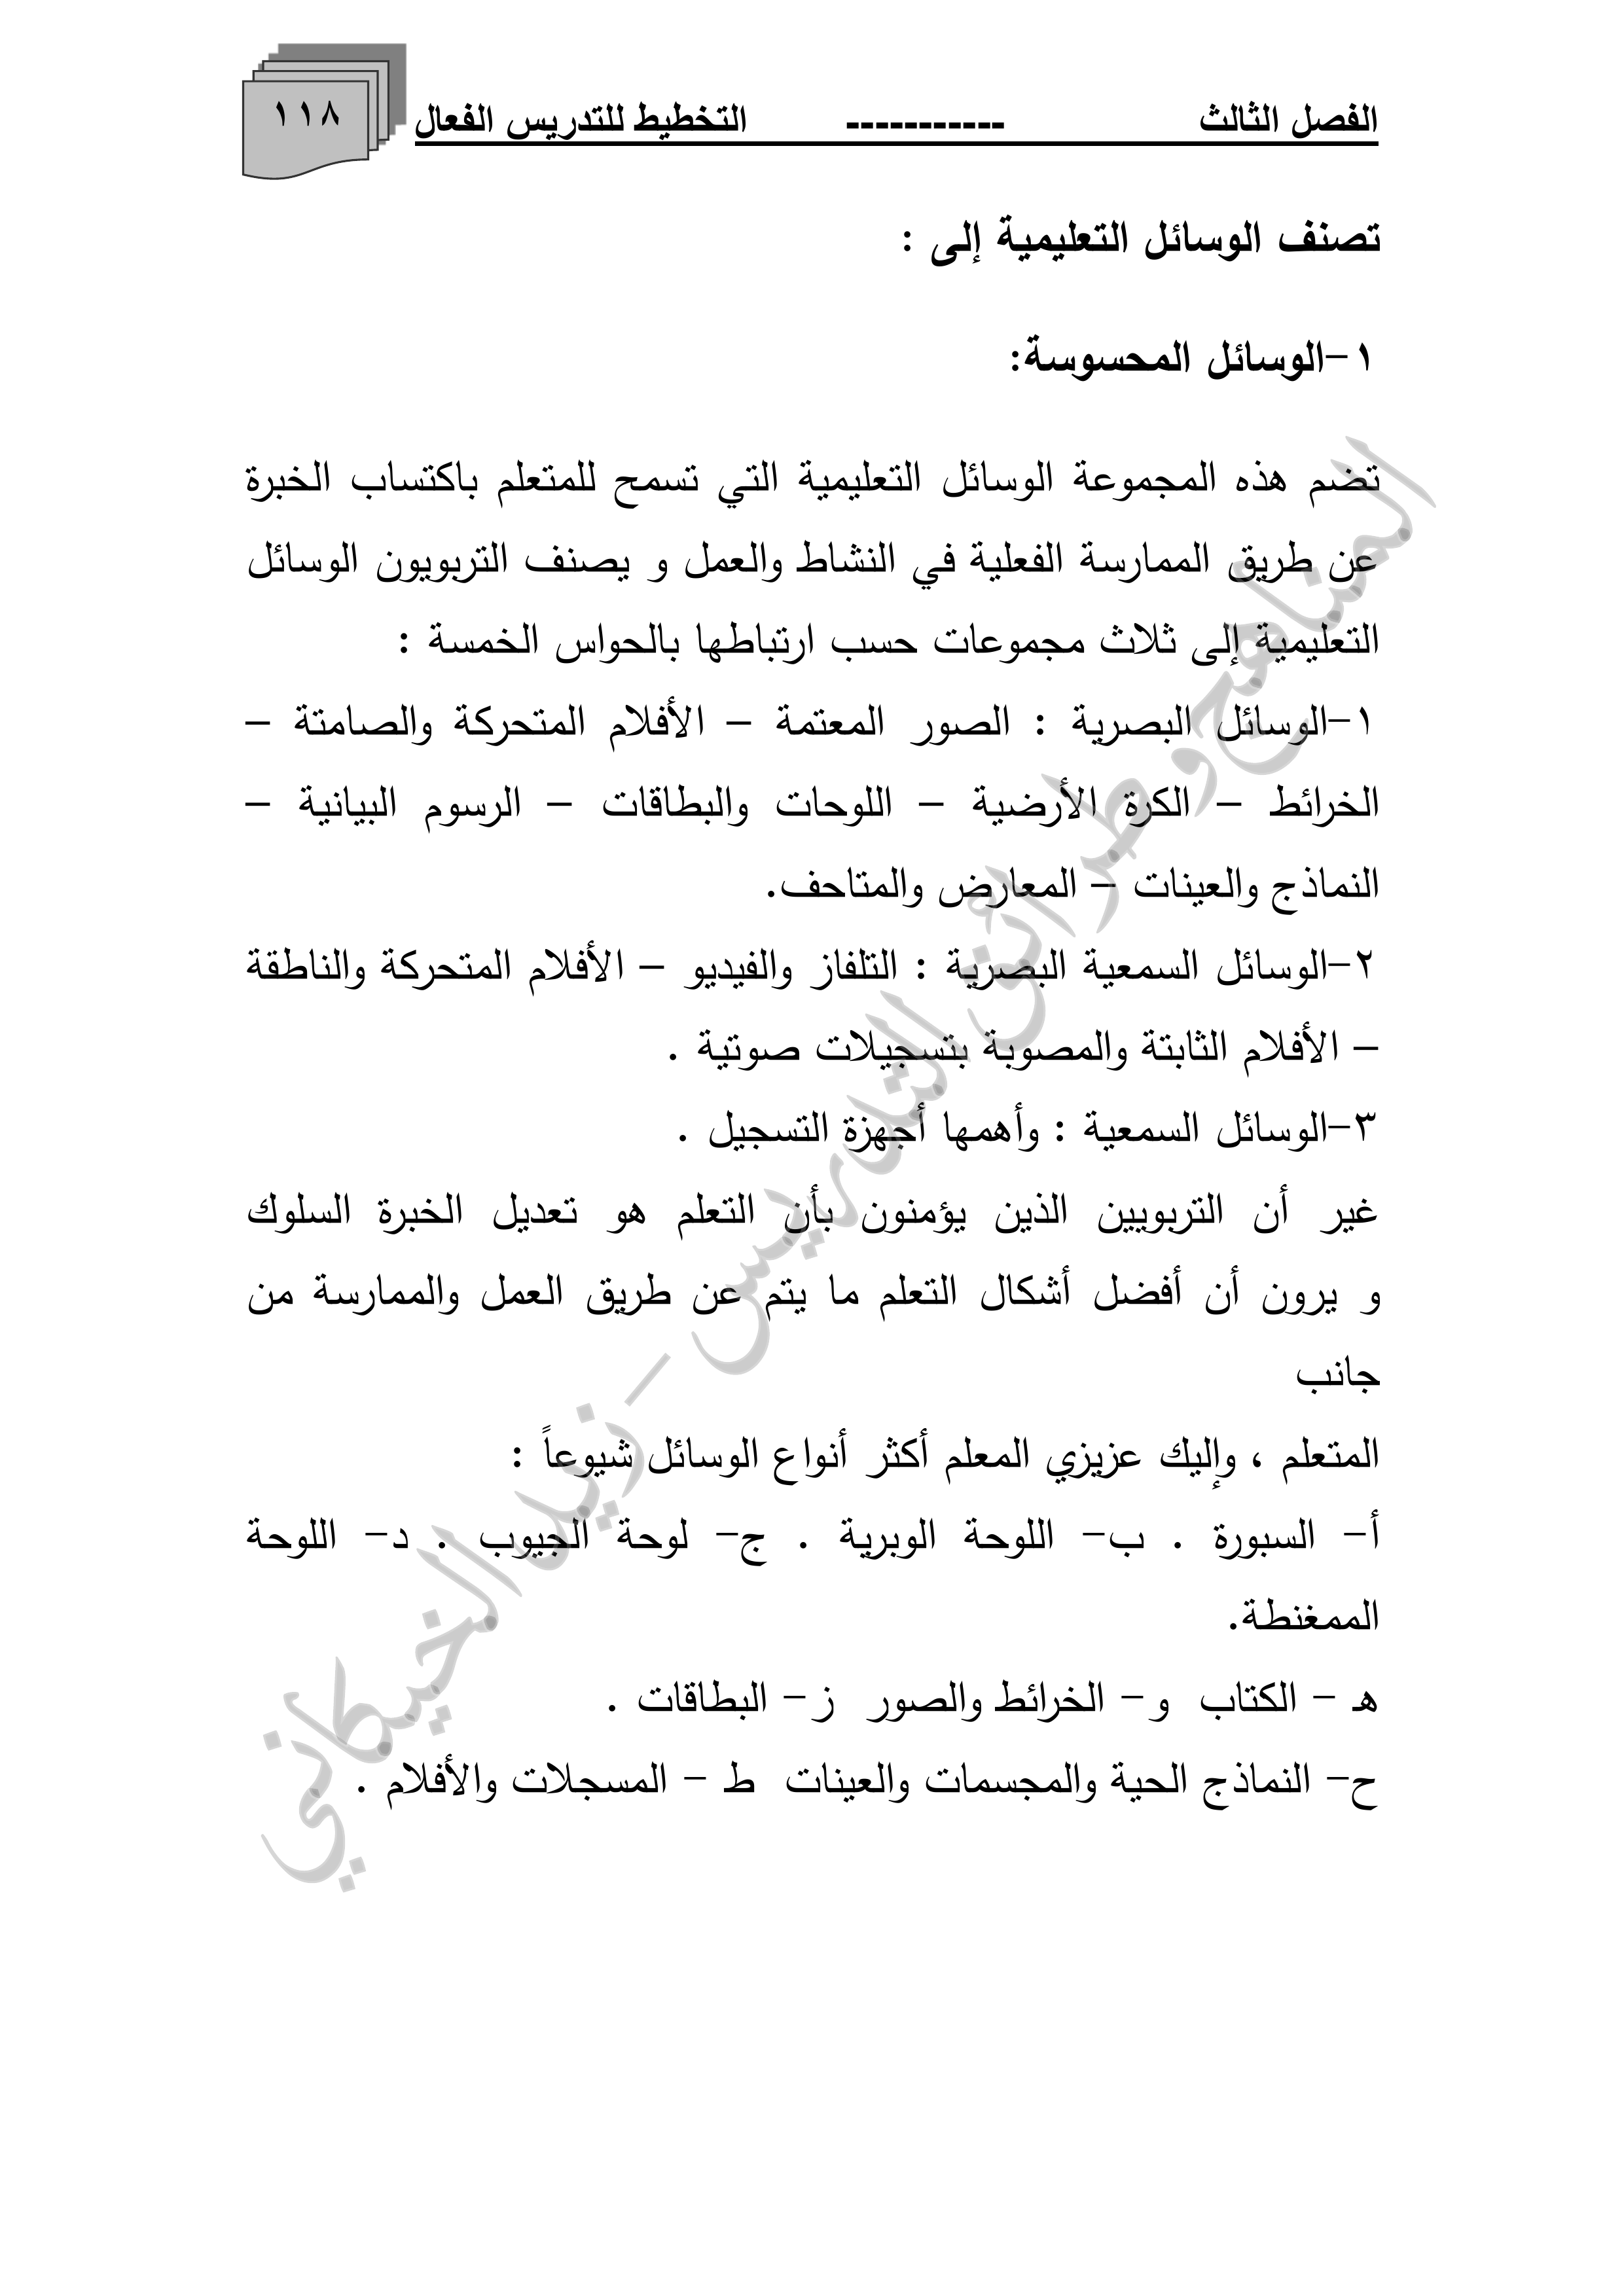 الفصل الثالث ----------- التخطيط للتدريس الفعال
١١٨
تصنف الوسائل التعليمية إلى :
١-الوسائل المحسوسة:
تضم هذه المجموعة الوسائل التعليمية التي تسمح للمتعلم باكتساب الخبرة
عن طريق الممارسة الفعلية في النشاط والعمل و يصنف التربويون الوسائل
التعليمية إلى ثلاث مجموعات حسب ارتباطها بالحواس الخمسة :
١-الوسائل البصرية : الصور المعتمة – الأفلام المتحركة والصامتة –
الخرائط – الكرة الأرضية – اللوحات والبطاقات – الرسوم البيانية –
النماذج والعينات – المعارض والمتاحف.
٢-الوسائل السمعية البصرية : التلفاز والفيديو – الأفلام المتحركة والناطقة
– الأفلام الثابتة والمصوبة بتسجيلات صوتية .
٣-الوسائل السمعية : وأهمها أجهزة التسجيل .
غير أن التربويين الذين يؤمنون بأن التعلم هو تعديل الخبرة السلوك
و يرون أن أفضل أشكال التعلم ما يتم عن طريق العمل والممارسة من
جانب
المتعلم ، وإليك عزيزي المعلم أكثر أنواع الوسائل شيوعاً :
أ- السبورة . ب- اللوحة الوبرية . ج- لوحة الجيوب . د- اللوحة
الممغنطة.
هـ - الكتاب و- الخرائط والصور ز- البطاقات .
ح- النماذج الحية والمجسمات والعينات ط - المسجلات والأفلام .
المناهج وطرائق التدريس - زيد الخيكاني